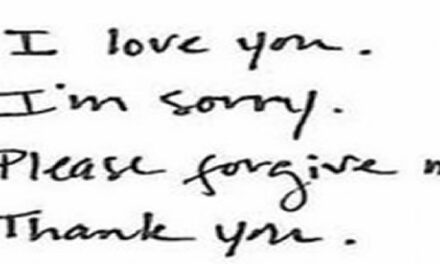 I love you.
I'm sorry.
Please forgive
Thank you.